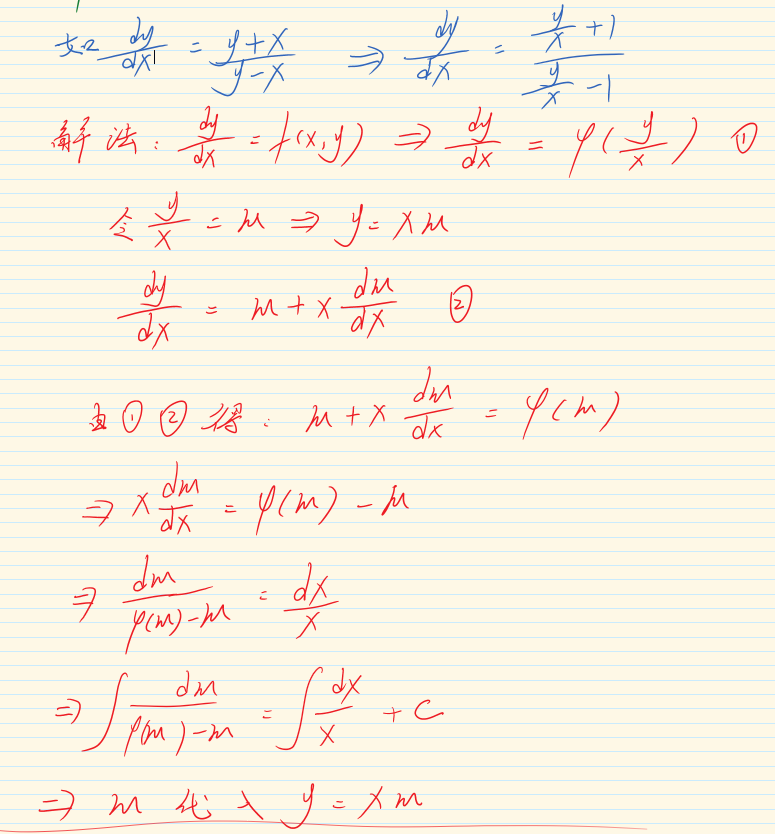 如 dy/dx = (y+x)/(y-x) ⇒ dy/dx = (y/x + 1)/(y/x - 1)
解法: dy/dx = f(x,y) ⇒ dy/dx = φ(y/x) ①
令 y/x = u ⇒ y = xu
dy/dx = u + x du/dx ②
由①②得: u + x du/dx = φ(u)
⇒ x du/dx = φ(u) - u
⇒ du/(φ(u)-u) = dx/x
⇒ ∫ du/(φ(u)-u) = ∫ dx/x + C
⇒ u 代入 y = xu